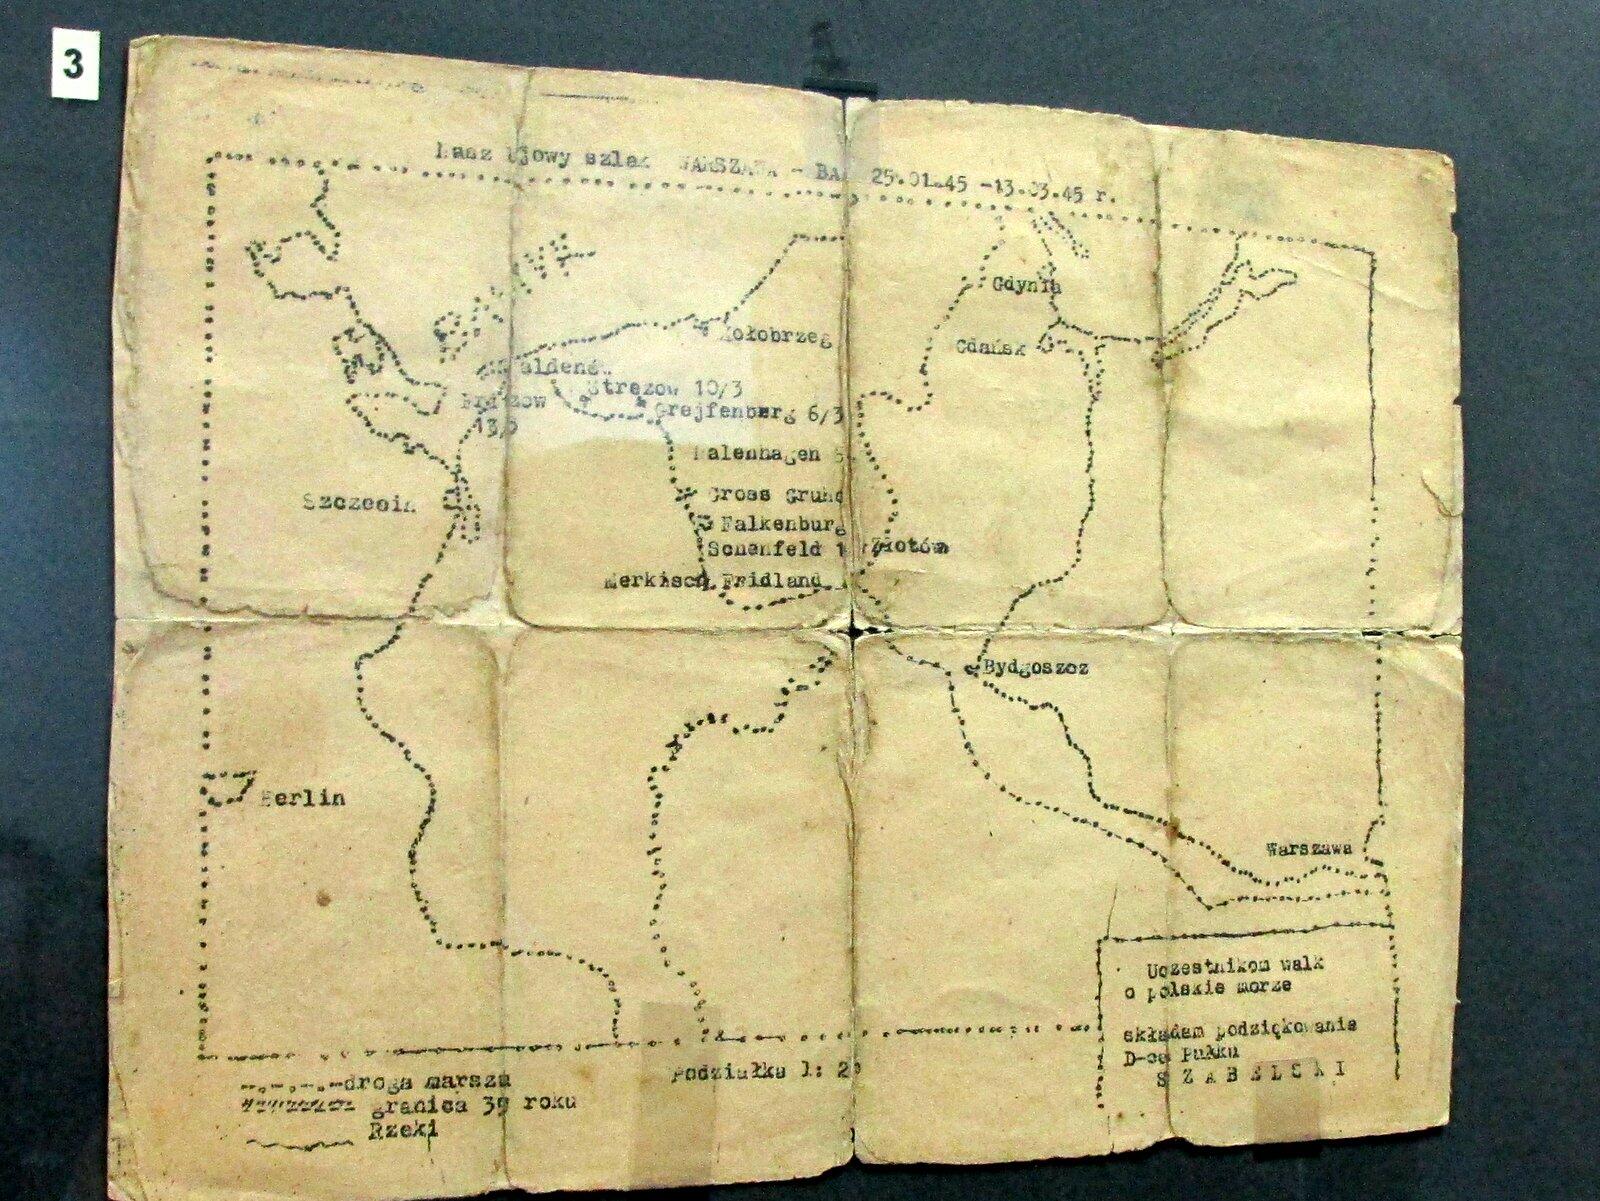 3
Nasz bojowy szlak WARSZAWA - BA 25.01.45 -13.03.45 r.
Gdynia
Kołobrzeg
Gdańsk
Strezow 10/3
Grejfenberg 6/3
13/3
Malenhagen
Szczecin
Gross Grund
Falkenburg
Schenfeld 1
Złotów
Merkisch Fridland
Bydgoszcz
Berlin
Warszawa
Uczestnikom walk
o polskie morze
składam podziękowania
D-ca Pułku
S Z A B E L S K I
Podziałka 1: 2
droga marszu
granica 39 roku
Rzeki